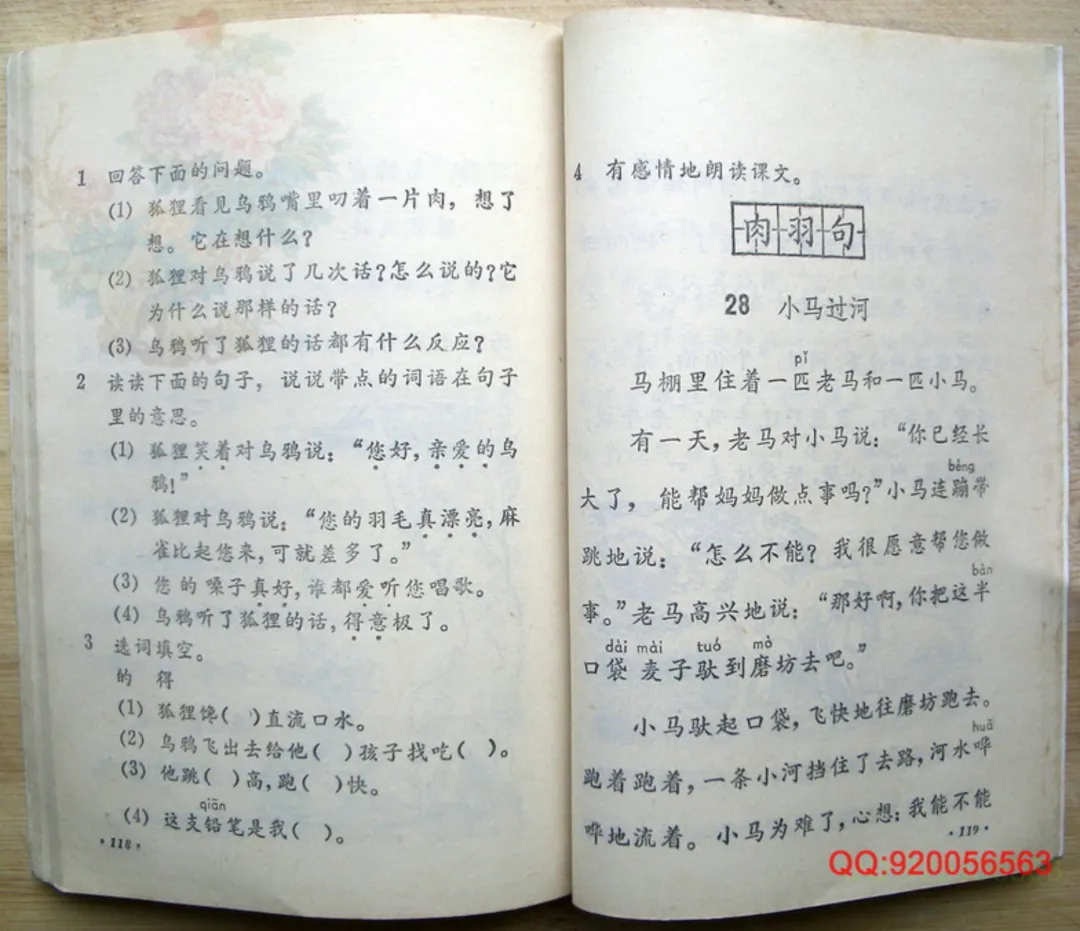 1 回答下面的问题。
(1) 狐狸看见乌鸦嘴里叨着一片肉，想了
想。它在想什么？
(2) 狐狸对乌鸦说了几次话？怎么说的？它
为什么说那样的话？
(3) 乌鸦听了狐狸的话都有什么反应？
2 读读下面的句子，说说带点的词语在句子
里的意思。
(1) 狐狸笑着对乌鸦说：“您好，亲爱的乌
鸦！”
(2) 狐狸对乌鸦说：“您的羽毛真漂亮，麻
雀比起您来，可就差多了。”
(3) 您的嗓子真好，谁都爱听您唱歌。
(4) 乌鸦听了狐狸的话，得意极了。
3 选词填空。
的 得
(1) 狐狸馋( )直流口水。
(2) 乌鸦飞出去给他( )孩子找吃( )。
(3) 他跳( )高，跑( )快。
qiān
(4) 这支铅笔是我( )。
·118·
4 有感情地朗读课文。
肉羽句
28 小马过河
pǐ
马棚里住着一匹老马和一匹小马。
有一天，老马对小马说：“你已经长
bèng
大了，能帮妈妈做点事吗？”小马连蹦带
跳地说：“怎么不能？我很愿意帮您做
bàn
事。”老马高兴地说：“那好啊，你把这半
dài mài tuó mò
口袋麦子驮到磨坊去吧。”
小马驮起口袋，飞快地往磨坊跑去。
huā
跑着跑着，一条小河挡住了去路，河水哗
哗地流着。小马为难了，心想：我能不能
·119·
QQ:920056563